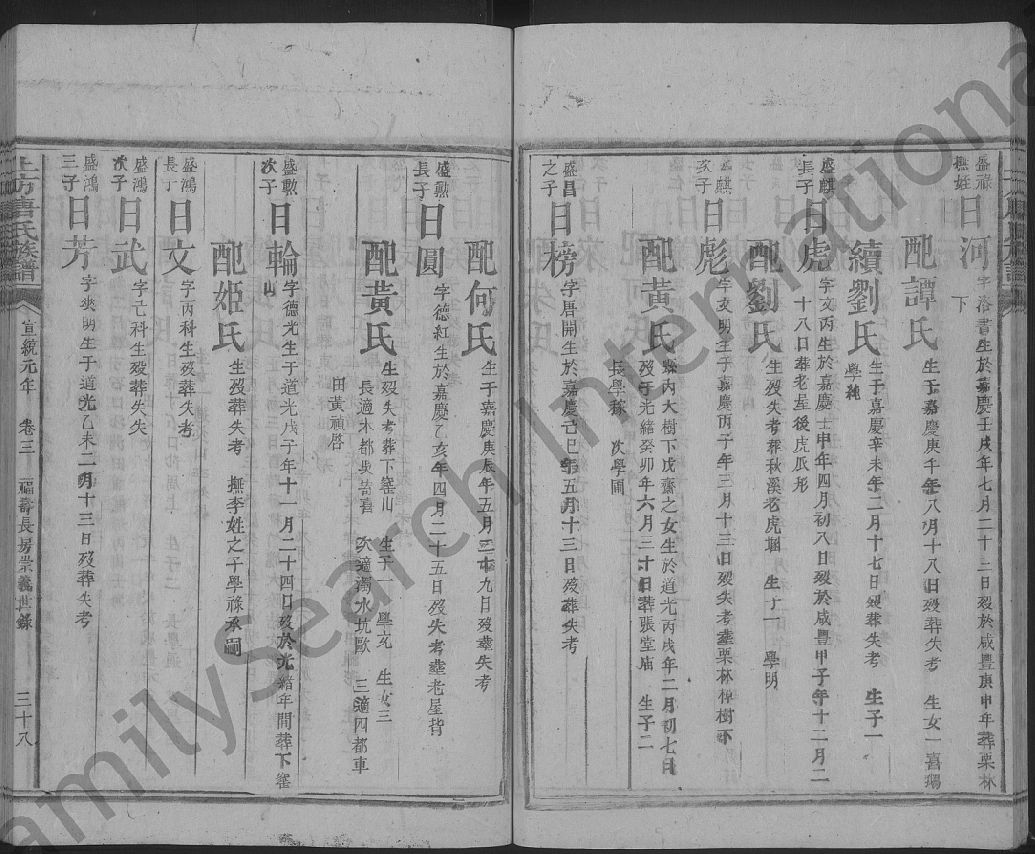 盛祿
撫姪
日河
字洛書生於嘉慶壬戌年七月二十二日歿於咸豐庚申年葬栗林
下
配譚氏
生于嘉慶庚午年八月十八日歿葬失考 生女一喜瑒
續劉氏
生于嘉慶辛未年二月十七日歿葬失考 生子一
學純
盛麒
長子
日虎
字文丙生於嘉慶壬申年四月初八日歿於咸豐甲子年十二月二
十八日葬老屋後虎爪形
配劉氏
生歿失考葬秋溪老虎 生子一 學明
盛麒
次子
日彪
字文明生于嘉慶丙子年三月十三日歿失考葬栗林樟樹下
配黃氏
縣內大樹下戊齋之女生於道光丙戌年二月初七日
歿于光緒癸卯年六月三十日葬張堂庙 生子二
長學稼 次學圃
盛昌
之子
日榜
字唐開生於嘉慶己巳年五月十三日歿葬失考
配何氏
生于嘉慶庚辰年五月二十九日歿葬失考
盛勲
長子
日圓
字德紅生於嘉慶乙亥年四月二十五日歿失考葬老屋背
配黃氏
生歿失考葬下窰山 生子一 學充 生女三
長適本都柴喜 次適濁水坑歐 三適四都車
田黃禎啓
盛勲
次子
日輪
字德光生于道光戊子年十一月二十四日歿於光緒年間葬下窰
山
配姬氏
生歿葬失考 撫李姓之子學祿承嗣
盛鴻
長子
日文
字丙科生歿葬失考
盛鴻
次子
日武
字亡科生歿葬失失
盛鴻
三子
日芳
字炎明生于道光乙未二月十三日歿葬失考
上方唐氏族譜
宣統元年 卷三 福壽長房崇義世錄
三十八
FamilySearch International